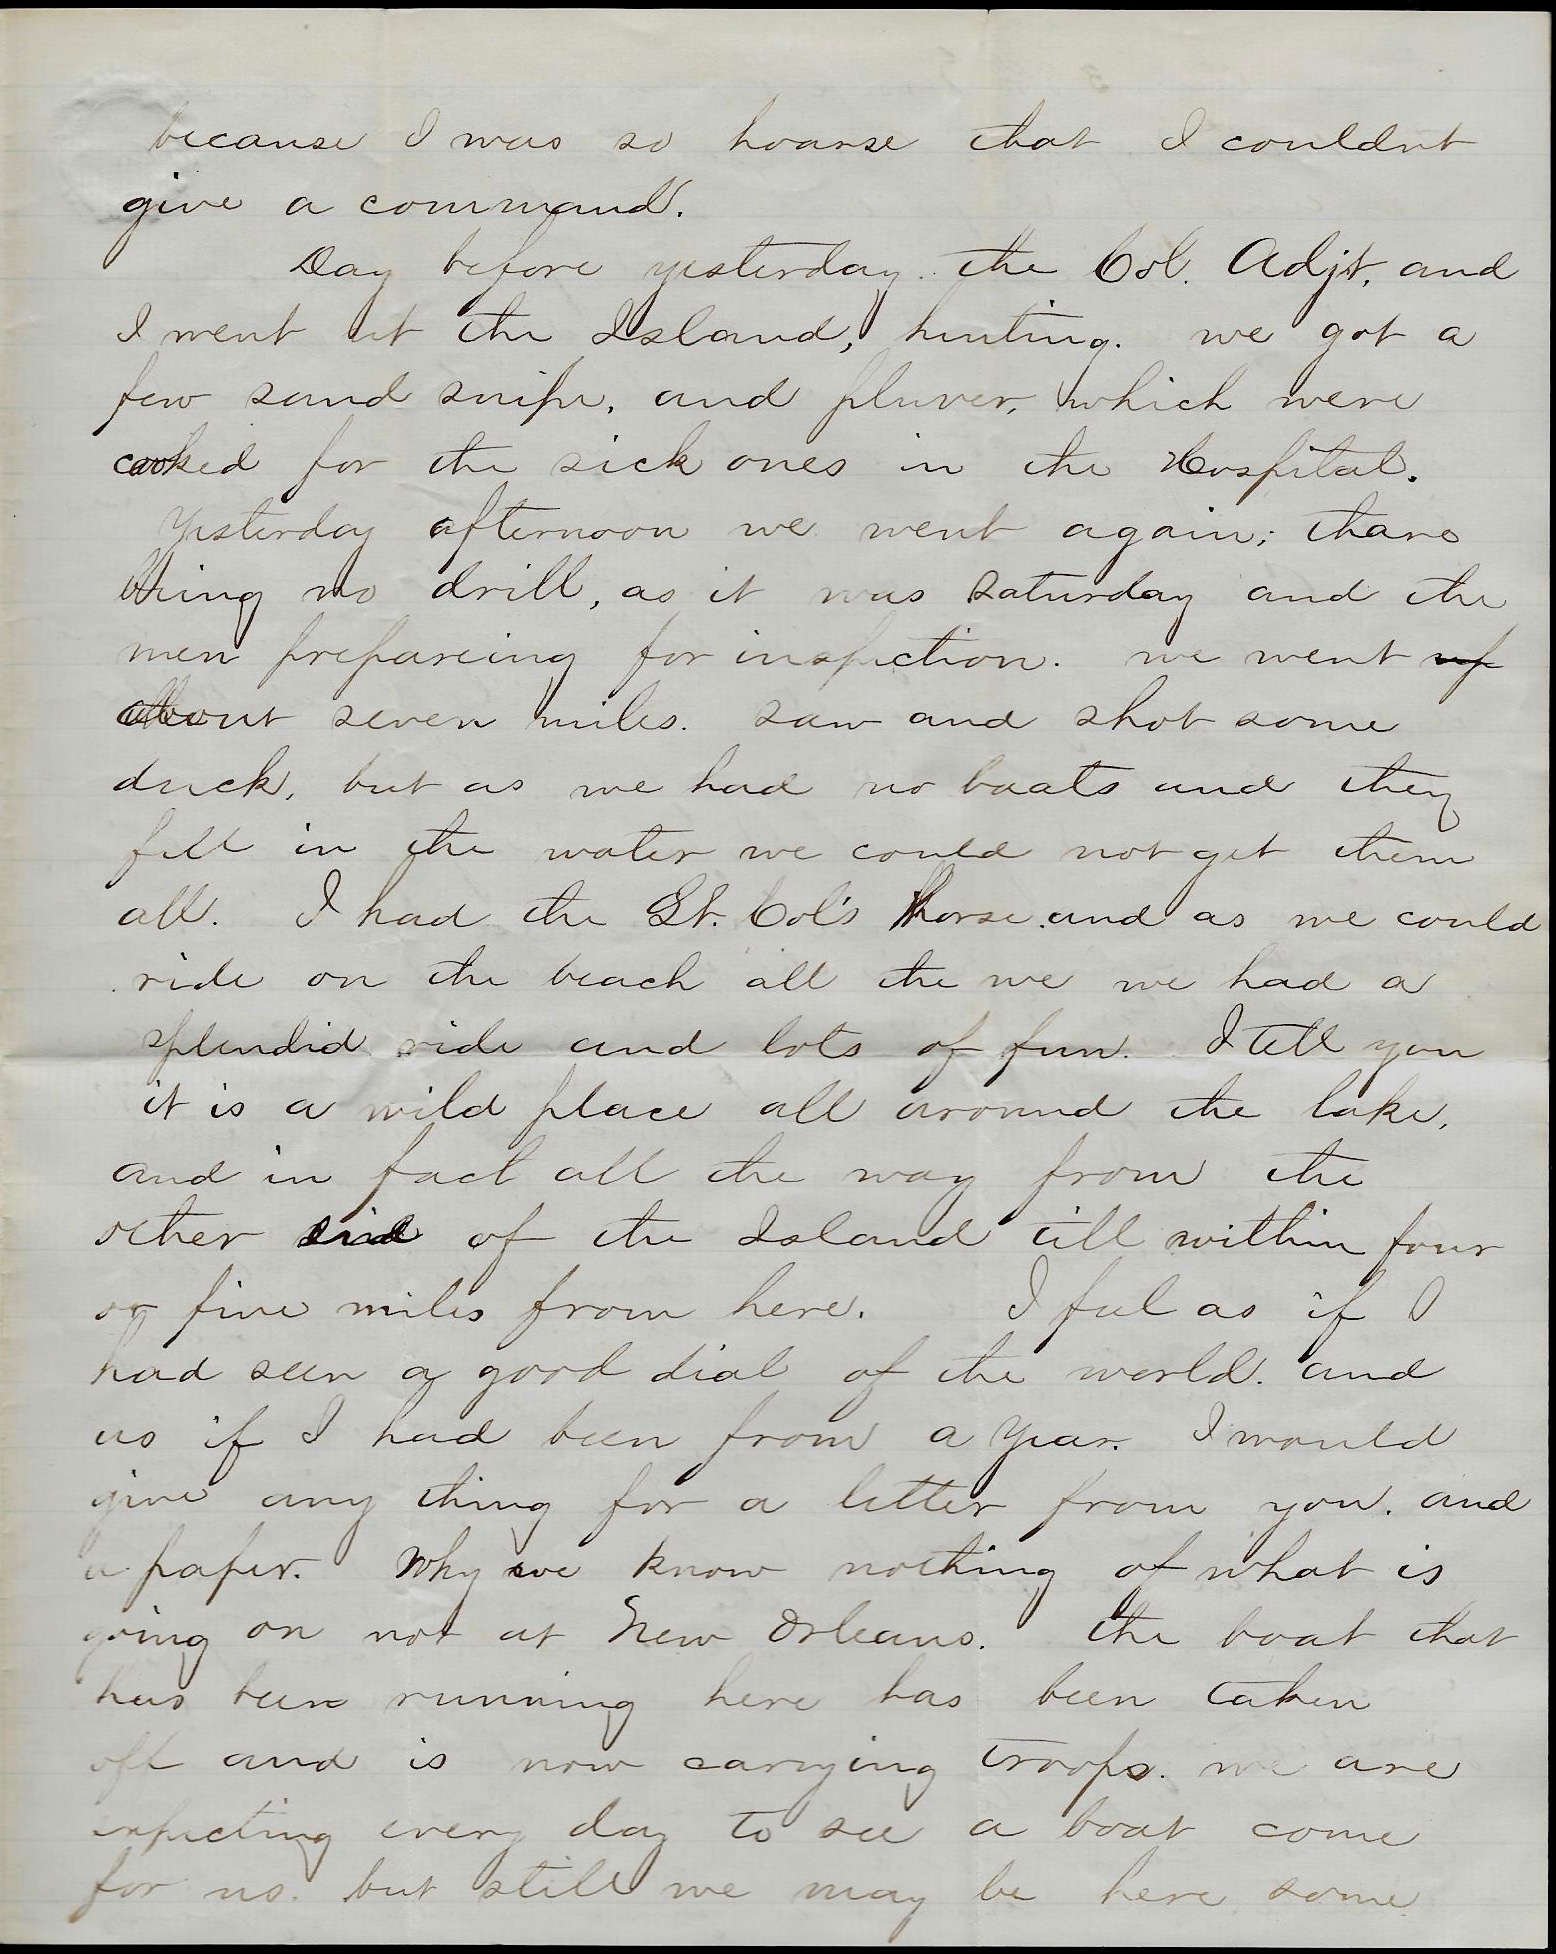 because I was so hoarse that I couldnt
give a command.
Day before yesterday the Col. Adjt. and
I went ut the Island, hunting. we got a
few sand snipe, and pluver, which were
cooked for the sick ones in the Hospital.
Yesterday afternoon we went again; thare
being no drill, as it was Saturday and the
men prepareing for inspection. we went up
about seven miles. saw and shot some
duck, but as we had no boats and they
fell in the water we could not get them
all. I had the Lt. Col's horse and as we could
ride on the beach all the we we had a
splendid ride and lots of fun. I tell you
it is a wild place all around the lake,
and in fact all the way from the
other side of the Island till within four
or five miles from here. I feel as if I
had seen a good dial of the world. and
as if I had been from a year. I would
give any thing for a letter from you. and
a paper. Why we know nothing of what is
going on not at New Orleans. the boat that
has been running here has been taken
off and is now carrying troops. we are
expecting every day to see a boat come
for us. but still we may be here some